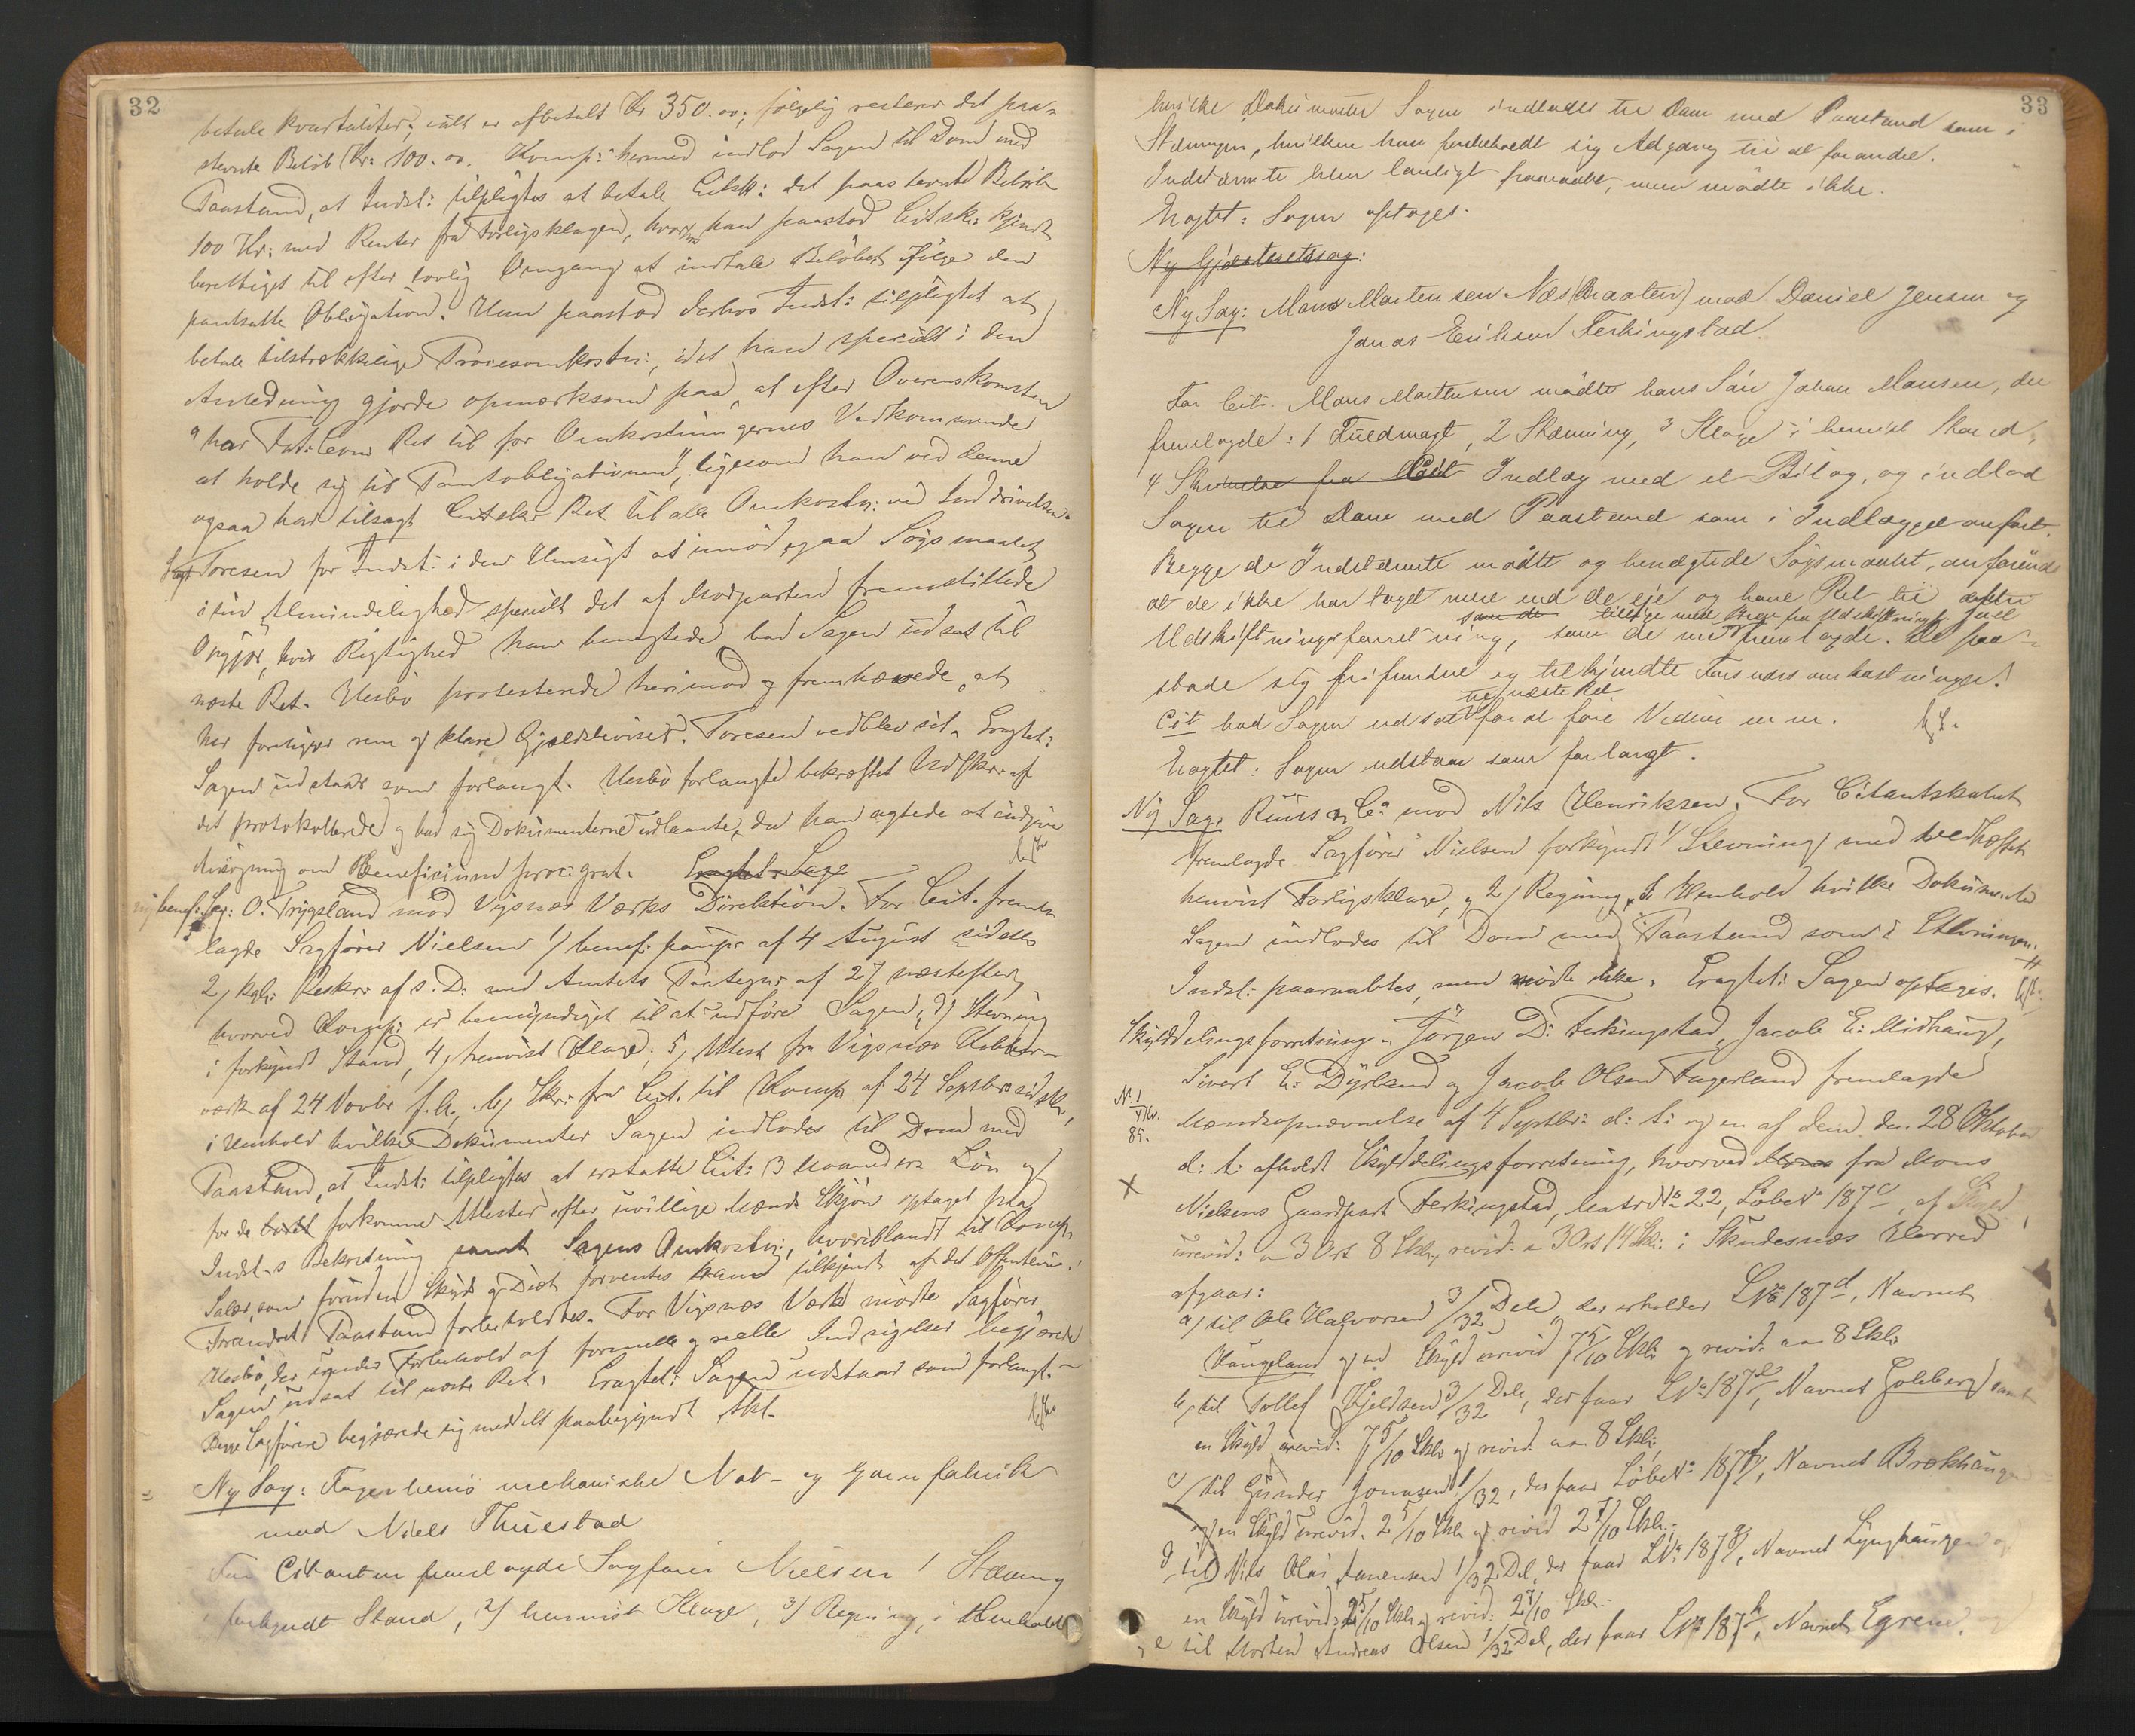 32
betale kvartaliter; ialt er afbetalt Kr 350.00; følgelig resterer det paa-
stevnte Beløb Kr: 100.00. Komp: hermed indlod Sagen til Dom med
Paastand, at Indst: tilpligtes at betale Citsk: det paastevnte Beløb
100 Kr: med Renter fra Forligsklagen, hvor han paastod Citsk: kjendt
berettiget til efter lovlig Omgang at indtale Beløbet ifølge den
pantsatte Obligation. Han paastod derhos Indst: tilpligtet at
betale tilstrækkelige Procesomkostn:, idet han specielt i den
Anledning gjorde opmærksom paa, at efter Overenskomsten
"har Fat: Ret til for Omkostningernes Vedkommende
at holde sig til Pantobligationen", ligesom han ved denne
ogsaa har tilsagt Citsk: Ret til alle Omkostn: ved Inddrivelsen.
Toresen for Indst: i den Hensigt at imødegaa Søgsmaalet
i sin Almindelighed specielt det af Modparten fremstillede
Opgjør, hvis Rigtighed han benægtede bad Sagen udsat til
næste Ret. Uesbø protesterede herimod og fremhævede, at
her foreligger rene og klare Gjældsbeviser. Toresen vedblev sit. Eragtet:
Sagen udstaar som forlangt. Uesbø forlangte bekræftet Udskr: af
det protokollerede og bad sig Dokumenterne udlaante, da han agtede at indgive
Ansøgning om Beneficium proc: grat. Eragtet: Sage
Ny benef: Sag: O. Trygsland mod Vigsnæs Værks Direktion. For Cit. frem-
lagde Sagfører Nielsen 1) benef: paup: af 4 August sidstl
2) kgl: Reskr: af s. D: med Amtets Paategn: af 27 næstefter,
hvorved Komp: er bemyndiget til at udføre Sagen, 3) Stevning
i forkyndt Stand, 4) henvist Klage, 5) Attest fra Vigsnæs Kobber-
værk af 24 Novbr f. A., 6) Skr: fra Cit. til Komp af 24 Septbr sidstl,
i Henhold hvilke Dokumenter Sagen indlodes til Dom med
Paastand, at Indst: tilpligtes at erstatte Cit: 3 Maaneders Løn og
for de forkomne Attester efter uvillige Mænds Skjøn optaget paa
Indst-s Bekostning samt Sagens Omkostn:, hvoriblandt til Komp.
Salær, som foruden Skyds og Diæt forventes tilkjendt af det Offentlige.
Forandret Paastand forbeholdtes. For Vigsnæs Værk mødte Sagfører
Uesbø, der under Forbehold af formelle og reelle Indsigelser begjærede
Sagen udsat til næste Ret. Eragtet: Sagen udstaar som forlangt.
Begge Sagførere begjærede sig meddelt paabegyndt Akt.
Ny Sag: Fagerheims mekaniske Not- og Garnfabrik
mod Niels Thuestad
For Citanten fremlagde Sagfører Nielsen 1 Stævning
i forkyndt Stand, 2) henvist Klage, 3) Regning, i Henhold
33
hvilke Dokumenter Sagen indlodes til Dom med Paastand som i
Stævningen, hvilken han forbeholdt sig Adgang til at forandre.
Indstævnte blev lovligt paaraabt, men mødte ikke.
Eragtet: Sagen optages.
Ny Gjæsteretssag:
Ny Sag: Mons Mortensen Næs (Braaten) mod Daniel Jensen og
Jonas Eriksen Ferkingstad.
For Cit. Mons Mortensen mødte hans Søn Johan Monsen, der
fremlagde: 1 Fuldmagt, 2 Stævning, 3 Klage i henvist Stand,
4 Skrivelse fra Indlæg med et Bilag, og indlod
Sagen til Dom med Paastand som i Indlægget anført.
Begge de Indstævnte mødte og benægtede Søgsmaalet, anførende
at de ikke har taget mere end de eje og have Ret til efter
som de tillige med Brev fra Udskiftningsf. Juel
Udskiftningsforretning, som de fremlagde. De paa-
stode sig frifundne og tilkjendte Forsvarsomkostninger.
til næste Ret
Cit bad Sagen udsat for at føre Vidner m. m.
Eragtet: Sagen udstaar som forlangt.
Ny Sag: Ruus & Co mod Nils Henriksen. For Citantskabet
fremlagde Sagfører Nielsen forkyndt 1/ Stevning med vedhæftet
henvist Forligsklage, og 2/ Regning, I Henhold hvilke Dokumenter
Sagen indlodes til Dom med Paastand som i Stevningen.
Indst: paaraabtes, men mødte ikke. Eragtet: Sagen optages.
Skylddelingsforretning. Jørgen D: Ferkingstad, Jacob E: Midhaug,
Sivert E: Dyrland og Jacob Olsen Fagerland fremlagde
No 1
85.
Mændsopnævnelse af 4 Septbr: d: A: og en af dem den 28 Oktober
X
d: A: afholdt Skylddelingsforretning, hvorved fra Mons
Nielsens Gaardpart Ferkingstad, Matr No 22, Løbe No 187c, af Skyld
urevid: 3 Ort 8 Skl, revid: 3 Ort 14 Skl: i Skudesnæs Herred
afgaar:
a) til Ole Halvorsen 3/32 Dele, der erholder LNo 187d, Navnet
Haugeland og en Skyld urevid 7 5/10 Skl: og revid: 8 Skl:
b) til Tollef Kjeldsen 3/32 Dele, der faar LNo 187e, Navnet Solberg samt
en Skyld urevid: 7 5/10 Skl: og revid: 8 Skl:
c) til Gunder Jonassen 1/32, der faar Løbe No 187f, Navnet Brækhaugen
og en Skyld urevid. 2 5/10 Skl og revid 2 7/10 Skl:
d til Nils Olai Tanensen 1/32 Del, der faar LNo 187g, Navnet Lynghaugen og
en Skyld urevid: 2 5/10 Skl: og revid: 2 7/10 Skl:
e til Morten Andreas Olsen 1/32 Del, der faar LNo 187h, Navnet Egrene,